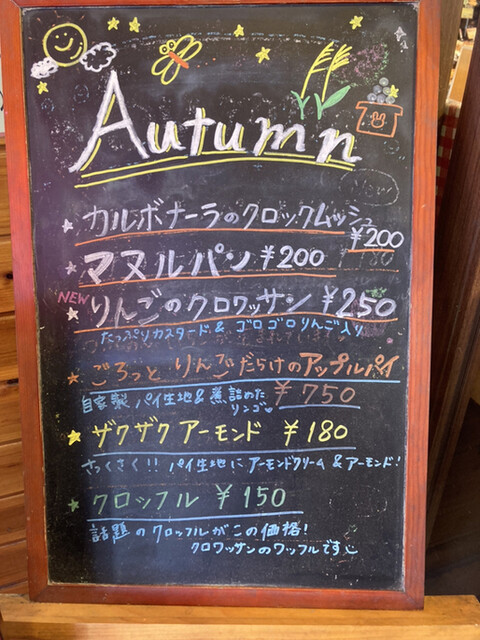 Autumn
カルボナーラのクロックムッシュ
¥200
マヌルパン ¥200
NEW りんごのクロワッサン ¥250
たっぷりカスタード & ゴロゴロりんご入り
ごろっと りんごだらけのアップルパイ
自家製 パイ生地&煮詰めた
リンゴ
¥750
ザクザクアーモンド ¥180
さっくさく!! パイ生地に アーモンドクリーム & アーモンド!
クロッフル ¥150
話題のクロッフルがこの価格!
クロワッサンのワッフルです